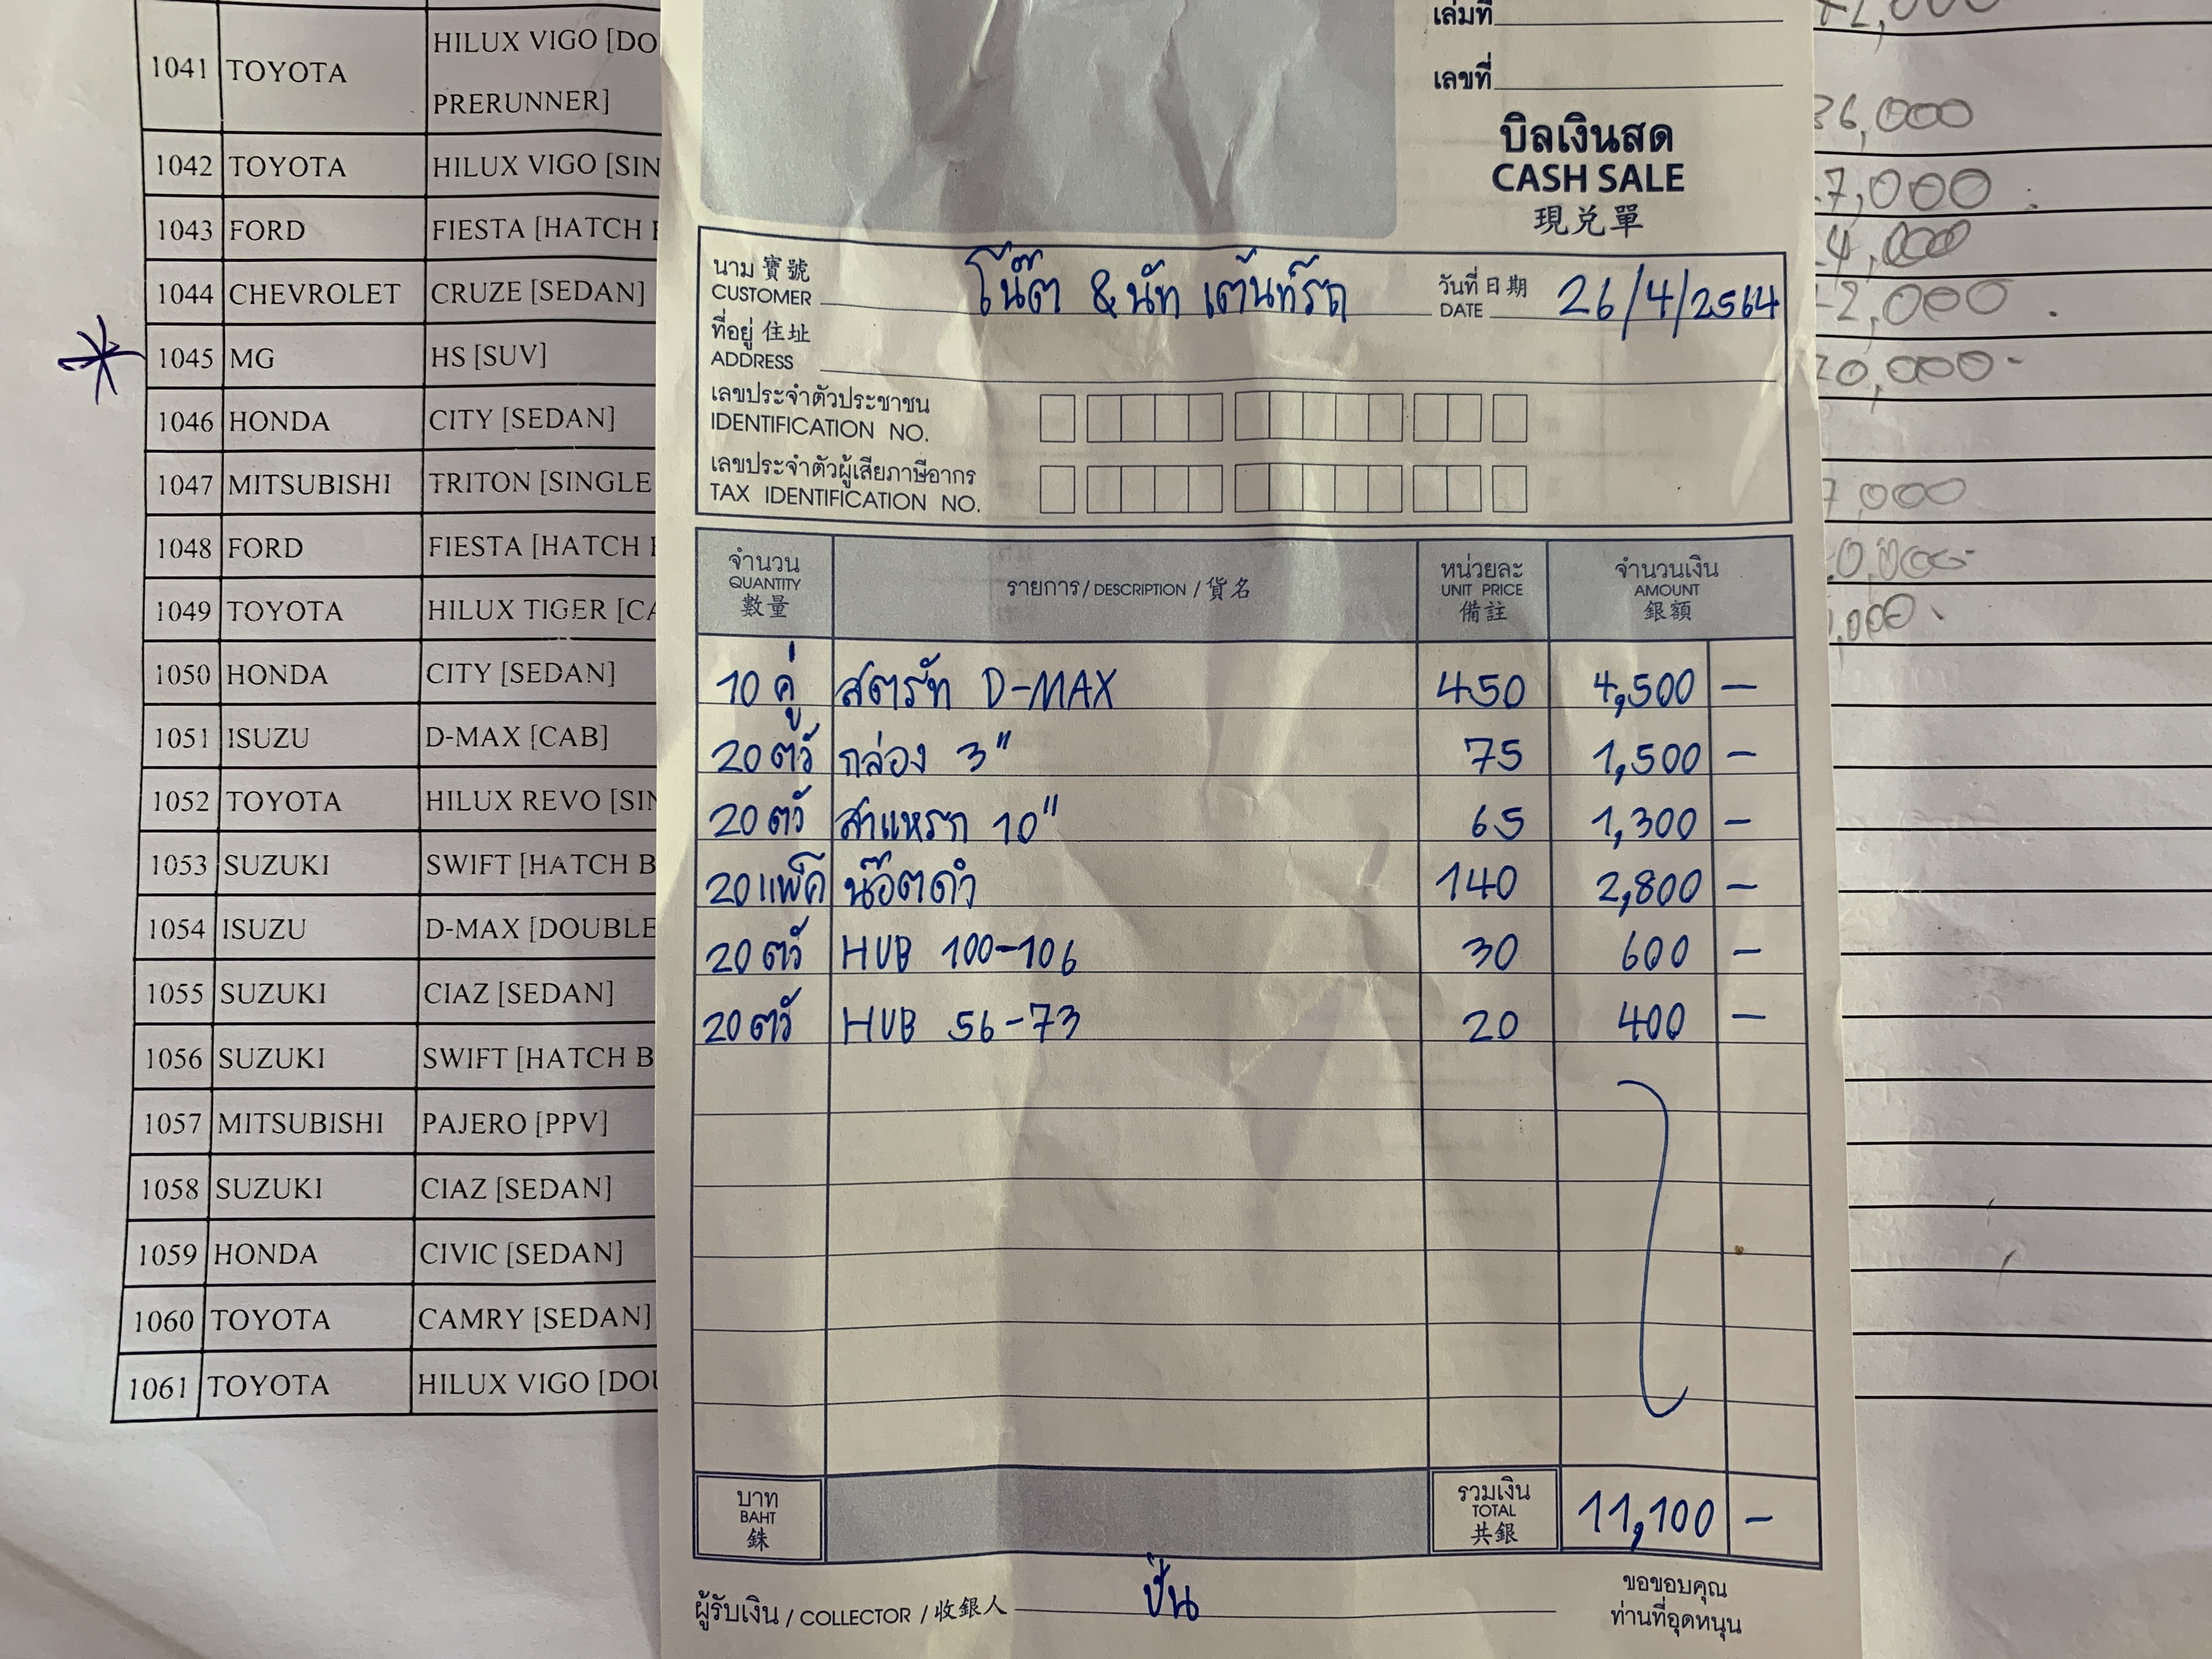 1041 TOYOTA HILUX VIGO [DO
PRERUNNER]
1042 TOYOTA HILUX VIGO [SIN
1043 FORD FIESTA [HATCH
1044 CHEVROLET CRUZE [SEDAN]
1045 MG HS [SUV]
1046 HONDA CITY [SEDAN]
1047 MITSUBISHI TRITON [SINGLE
1048 FORD FIESTA [HATCH
1049 TOYOTA HILUX TIGER [CA
1050 HONDA CITY [SEDAN]
1051 ISUZU D-MAX [CAB]
1052 TOYOTA HILUX REVO [SIN
1053 SUZUKI SWIFT [HATCH B
1054 ISUZU D-MAX [DOUBLE
1055 SUZUKI CIAZ [SEDAN]
1056 SUZUKI SWIFT [HATCH B
1057 MITSUBISHI PAJERO [PPV]
1058 SUZUKI CIAZ [SEDAN]
1059 HONDA CIVIC [SEDAN]
1060 TOYOTA CAMRY [SEDAN]
1061 TOYOTA HILUX VIGO [DOU
เล่มที่
เลขที่
บิลเงินสด
CASH SALE
現兌單
นาม 寶號
CUSTOMER โน๊ต & นัท เต้นท์รถ
วันที่ 日期
DATE 26/4/2564
ที่อยู่ 住址
ADDRESS
เลขประจำตัวประชาชน
IDENTIFICATION NO.
เลขประจำตัวผู้เสียภาษีอากร
TAX IDENTIFICATION NO.
จำนวน
QUANTITY
數量
รายการ / DESCRIPTION / 貨名
หน่วยละ
UNIT PRICE
備註
จำนวนเงิน
AMOUNT
銀額
10 คู่ สตรัท D-MAX 450 4,500 –
20 ตัว กล่อง 3" 75 1,500 –
20 ตัว สาแหรก 10" 65 1,300 –
20 แพ็ค น๊อตดำ 140 2,800 –
20 ตัว HUB 100-106 30 600 –
20 ตัว HUB 56-73 20 400 –
บาท
BAHT
銖
รวมเงิน
TOTAL
共銀
11,100 –
ผู้รับเงิน / COLLECTOR / 收銀人 ปั่น
ขอขอบคุณ
ท่านที่อุดหนุน
36,000
7,000
4,000
2,000
0,000-
7,000